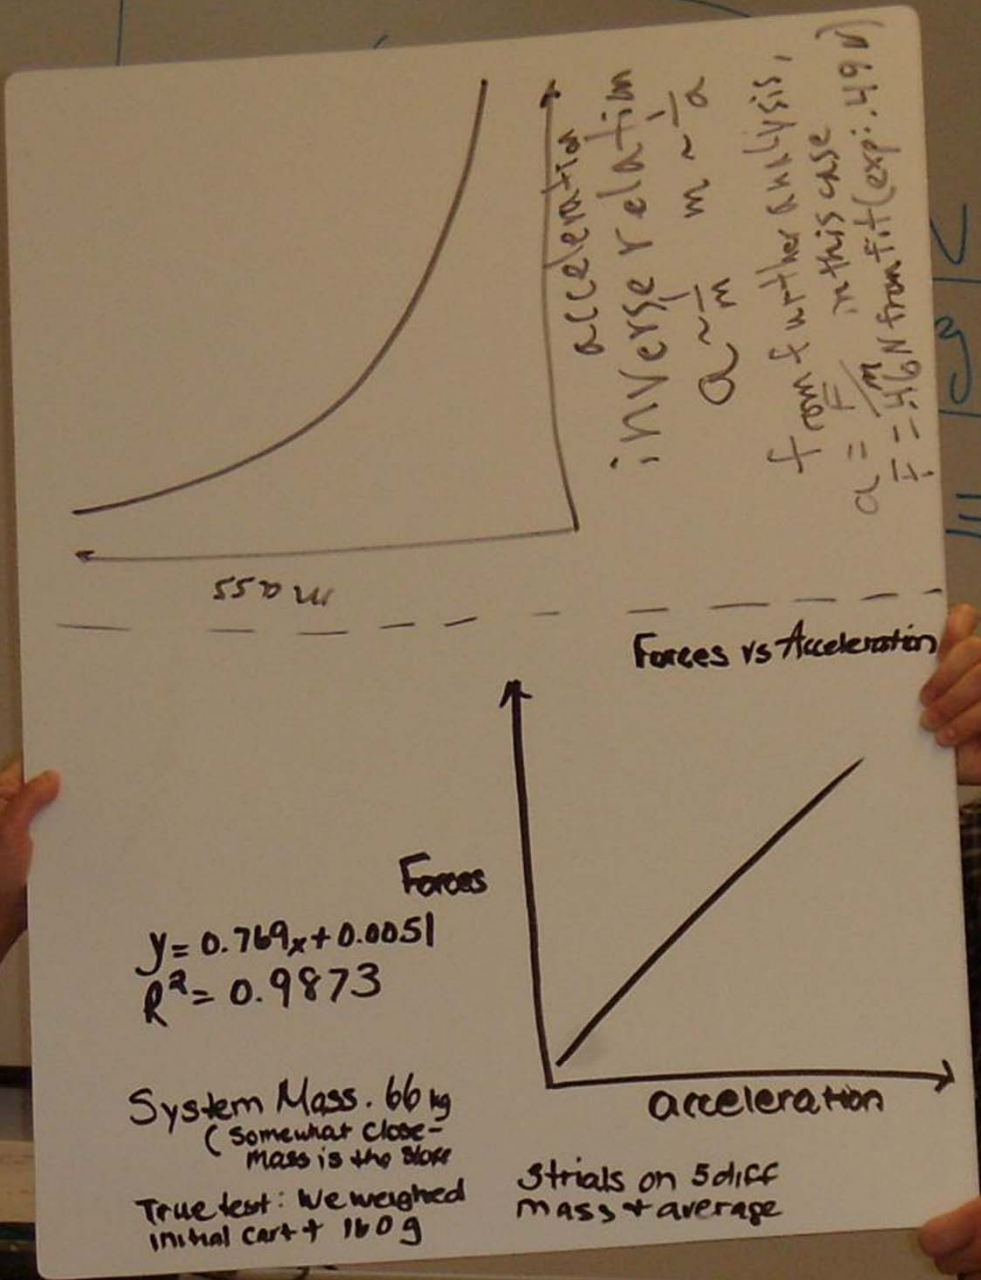 acceleration
inverse relation
a ~ 1/m m ~ 1/a
from further analysis,
a = F/m in this case
F = .46N from fit (exp: .49N)
mass
Forces vs Acceleration
Forces
y = 0.769x + 0.0051
R² = 0.9873
acceleration
System Mass .66 kg
(somewhat close-
mass is the slope
True test: We weighed
initial cart + 160g
3 trials on 5 diff
mass + average